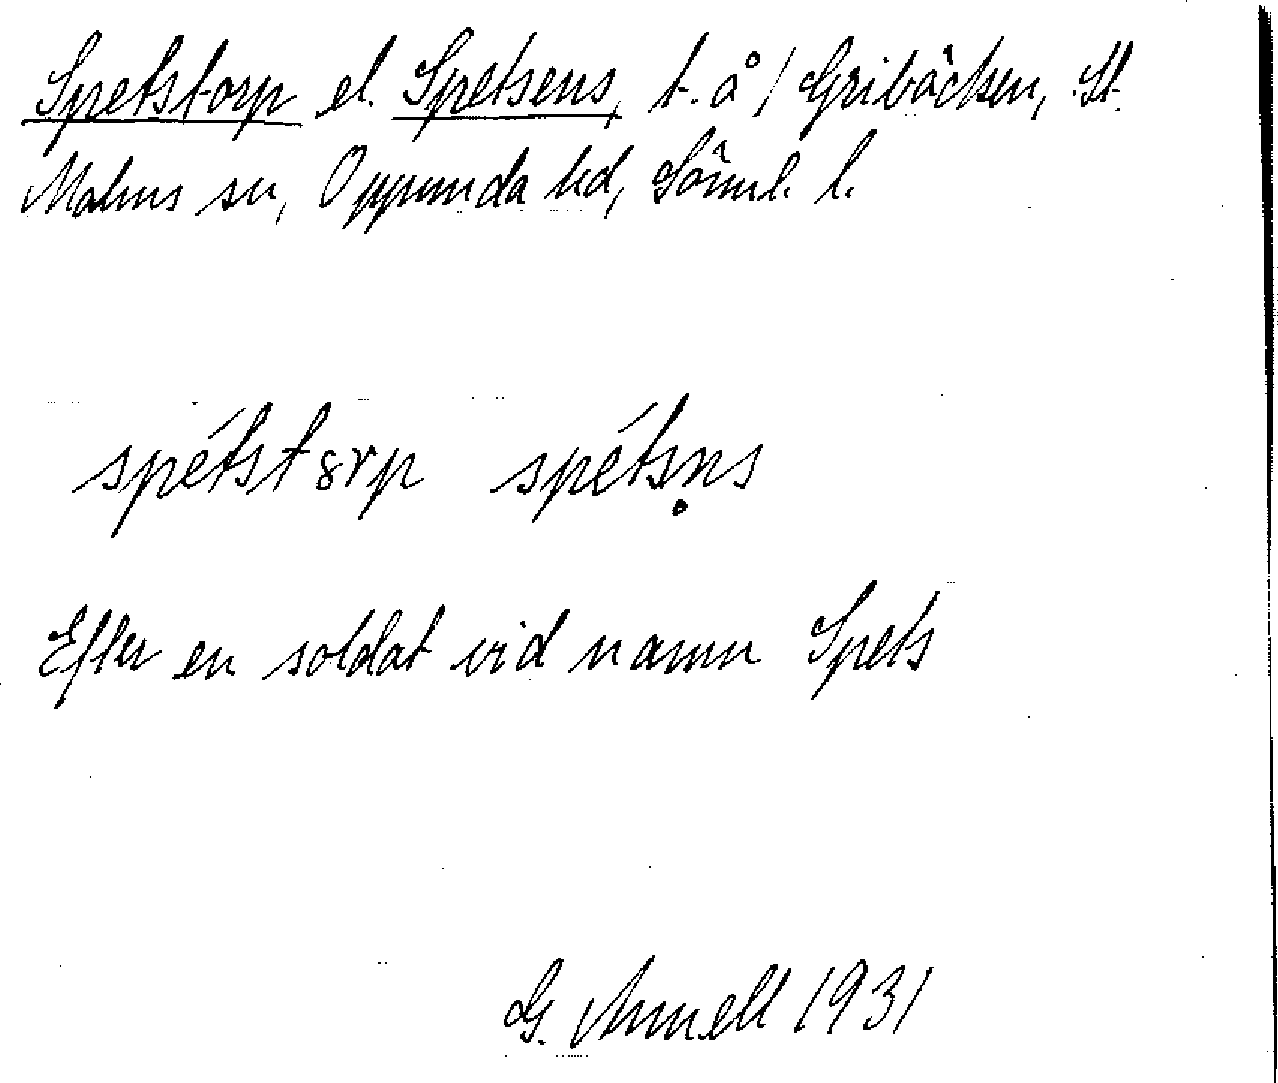 Spetstorp el. Spetsens, t. å / Gribäcken, St.
Malms sn, Oppunda hd, Sörml. l.
spétstɔrp spétsṇs
Efter en soldat vid namn Spets
G. Arnell 1931